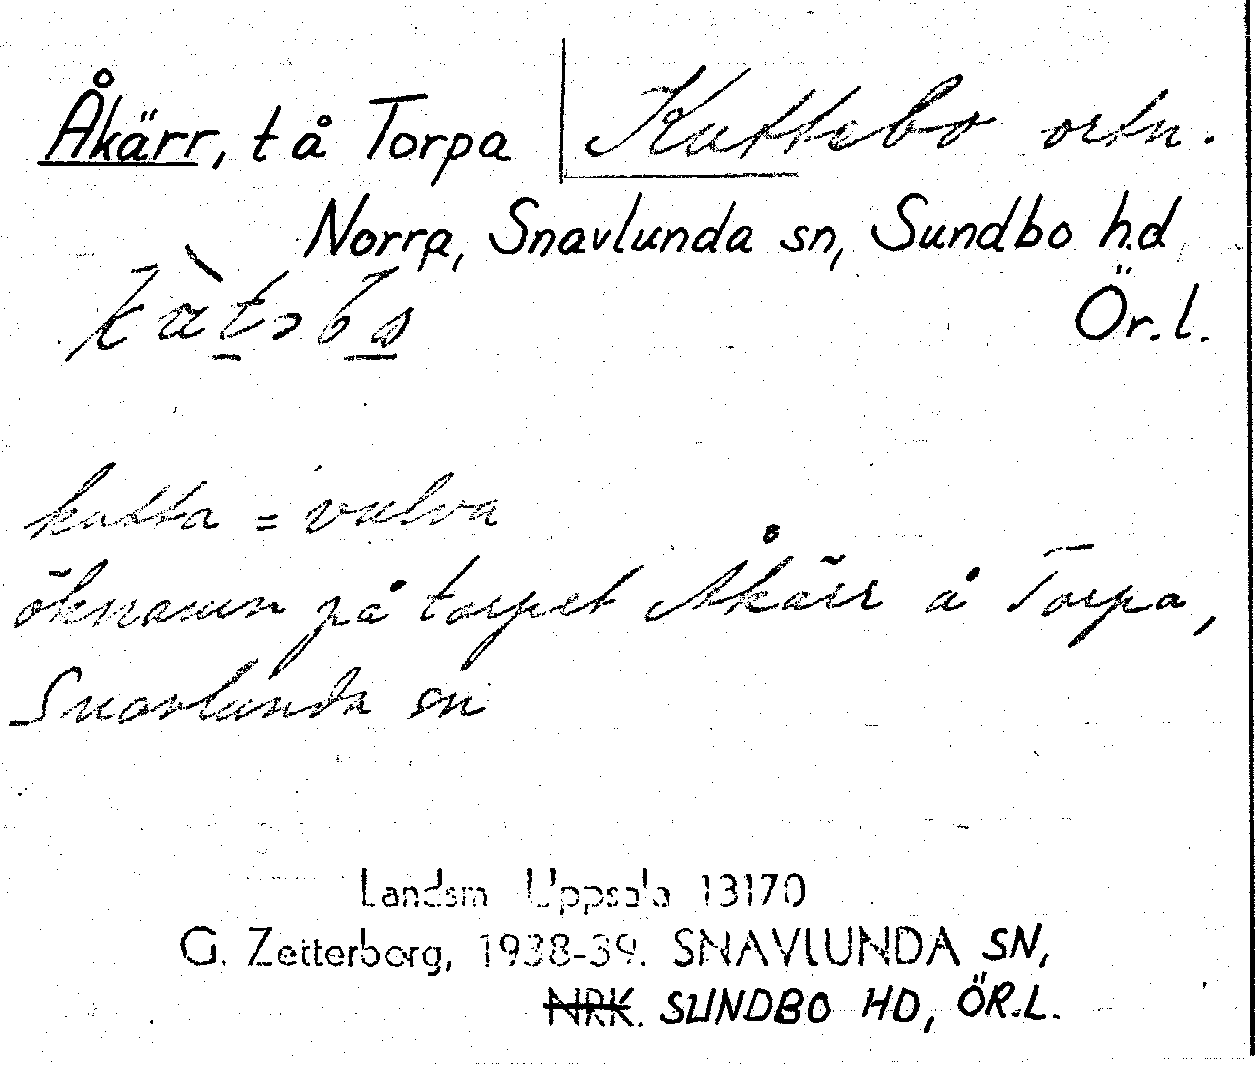 Åkärr, t å Torpa Kattebo ortn.
Norra, Snavlunda sn, Sundbo hd
Ör.l.
katta = vulva
öknamn på torpet Åkärr å Torpa,
Snavlunda sn
Landsm Uppsala 13170
G. Zetterborg, 1938-39. SNAVLUNDA SN,
NRK. SUNDBO HD, ÖR.L.